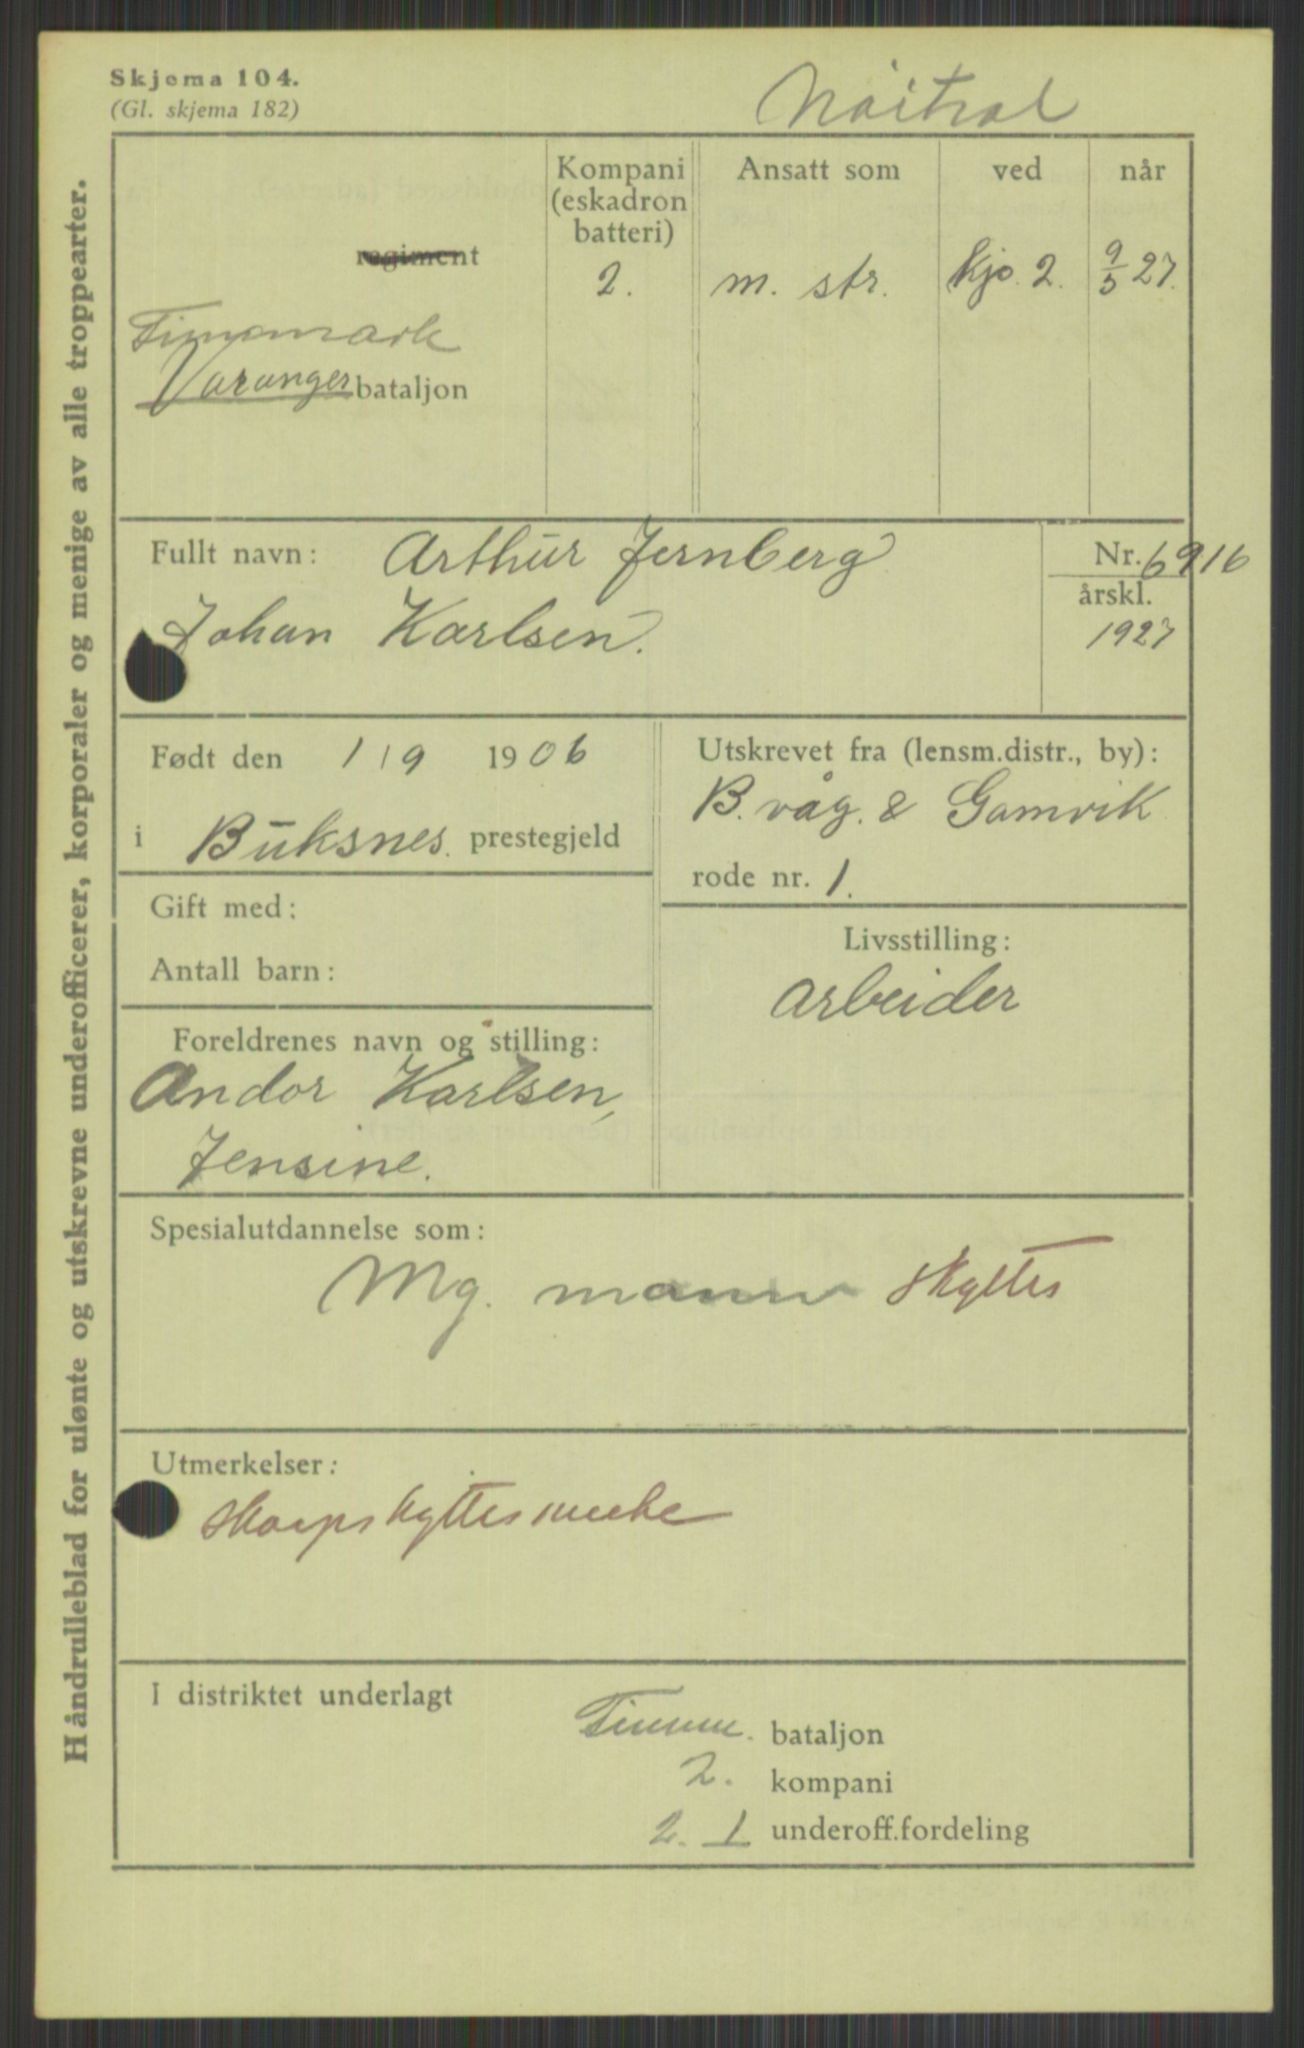 Skjema 104.
(Gl. skjema 182)
Nøitral
Håndrulleblad for ulønte og utskrevne underofficerer, korporaler og menige av alle troppearter.
Kompani (eskadron batteri)
Ansatt som
ved
når
regiment
2.
m. str.
kjo. 2.
9/5 27.
Finnmark
Varanger bataljon
Fullt navn: Arthur Jernberg
Johan Karlsen.
Nr. 6916
årskl.
1927
Født den 1/9 1906
i Buksnes. prestegjeld
Utskrevet fra (lensm.distr., by):
B.våg. & Gamvik
rode nr. 1.
Gift med:
Antall barn:
Livsstilling:
arbeider
Foreldrenes navn og stilling:
Andor Karlsen,
Jensine.
Spesialutdannelse som:
Mg. mann skytter
Utmerkelser:
skarpskyttermerke
I distriktet underlagt
Finnm. bataljon
2. kompani
2. 1 underoff.fordeling